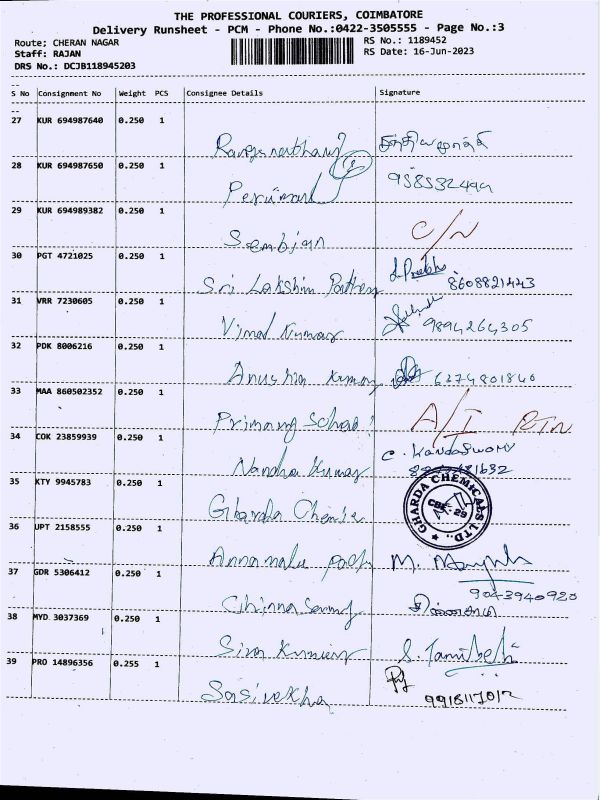 THE PROFESSIONAL COURIERS, COIMBATORE
Delivery Runsheet - PCM - Phone No.:0422-3505555 - Page No.:3
Route; CHERAN NAGAR
RS No.: 1189452
Staff: RAJAN
RS Date: 16-Jun-2023
DRS No.: DCJB118945203
S No Consignment No Weight PCS Consignee Details Signature
27 KUR 694987640 0.250 1
28 KUR 694987650 0.250 1
Perumal 958532494
29 KUR 694989382 0.250 1
Sembian C/N
30 PGT 4721025 0.250 1
Sri Lakshmi 8608821443
31 VRR 7230605 0.250 1
Vimal Kumar 9894264305
32 PDK 8006216 0.250 1
Anushia Kumar 6274801840
33 MAA 860502352 0.250 1
Primary School A/I RTN
34 COK 23859939 0.250 1
Nandha Kumar C. Kandaswamy
35 KTY 9945783 0.250 1
Gharda Chemic GHARDA CHEMICALS LTD., CBE-29
36 UPT 2158555 0.250 1
Annamalai M.
37 GDR 5306412 0.250 1
9043940920
Chinnasamy சின்னசாமி
38 MYD 3037369 0.250 1
Siva Kumar S. Tamil
39 PRO 14896356 0.255 1
Sasirekha